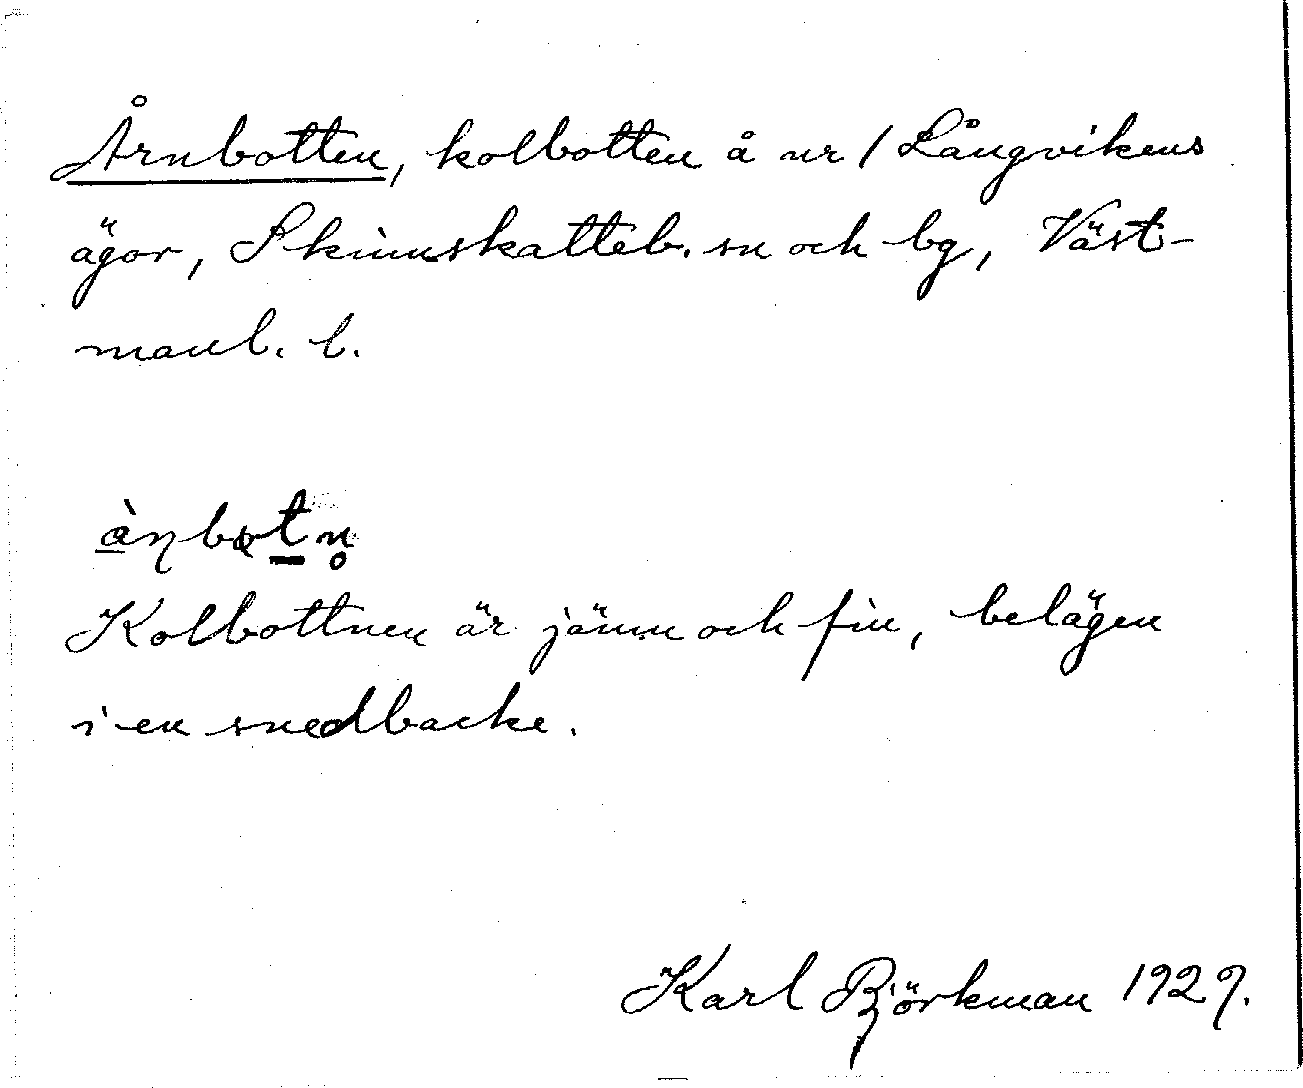 Årnbotten, kolbotten å nr 1 Långvikens
ägor, Skinnskatteb. sn och bg, Väst-
manl. l.
Kolbottnen är jämn och fin, belägen
i en snedbacke.
Karl Björkman 1929.